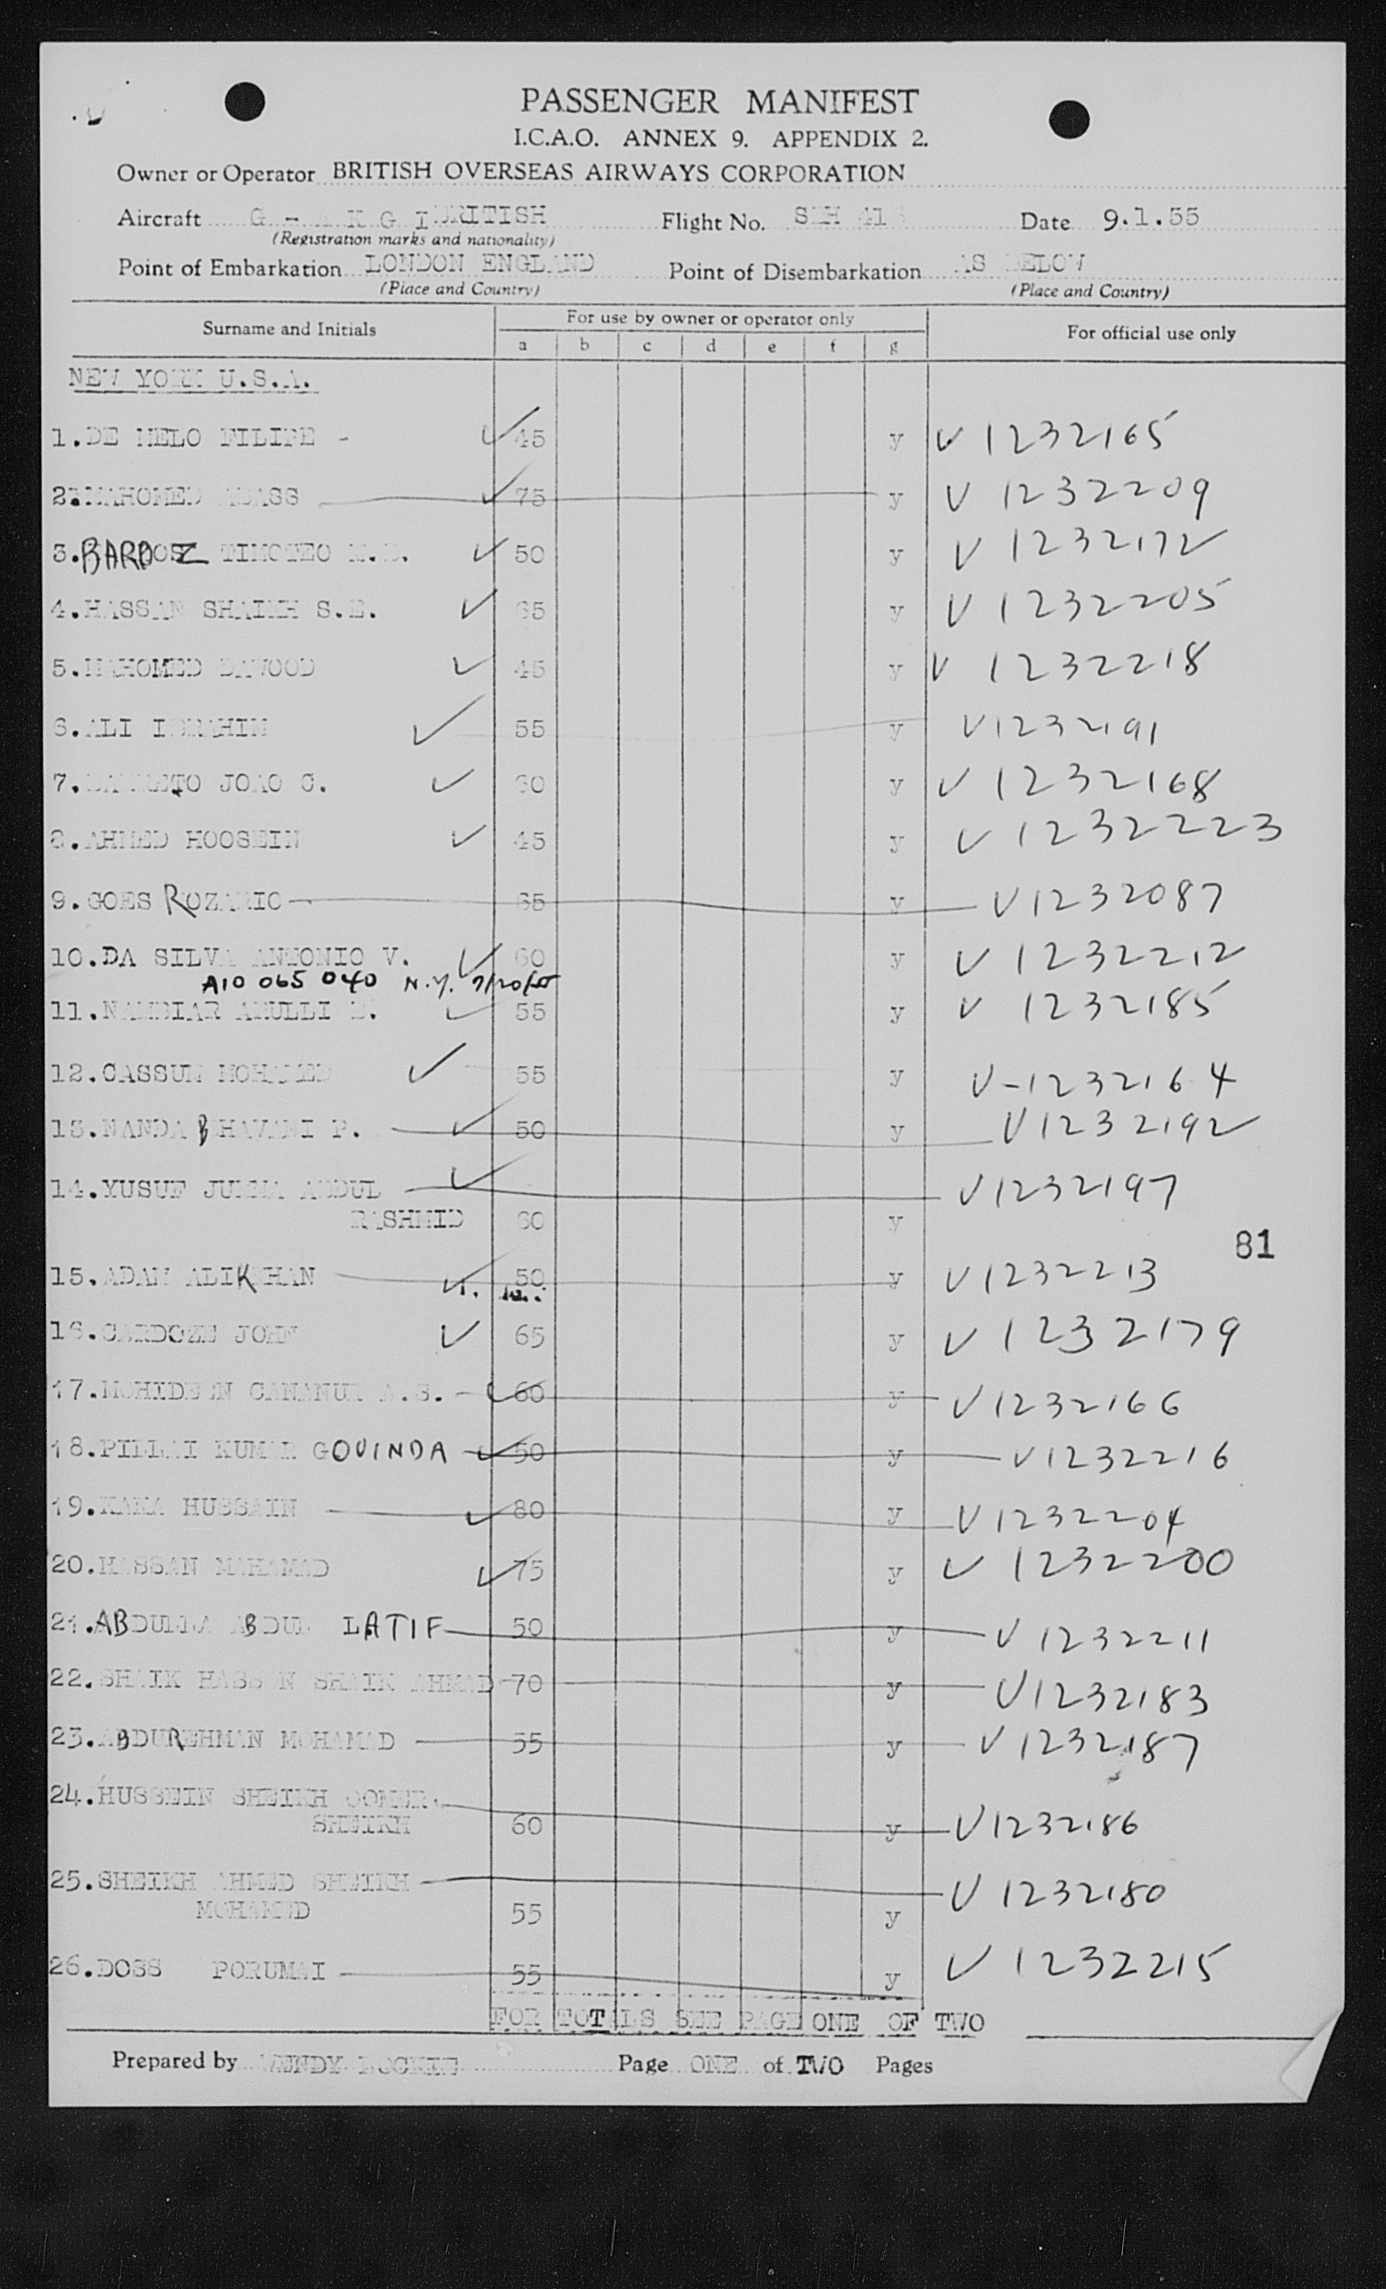 PASSENGER MANIFEST
I.C.A.O. ANNEX 9. APPENDIX 2.
Owner or Operator BRITISH OVERSEAS AIRWAYS CORPORATION
Aircraft G - A K G I BRITISH Flight No. 41 Date 9.1.55
(Registration marks and nationality)
Point of Embarkation LONDON ENGLAND Point of Disembarkation AS BELOW
(Place and Country) (Place and Country)
Surname and Initials For use by owner or operator only For official use only
a b c d e f g
NEW YORK U.S.A.
1. DE MELO FILIPE - 45 y V 1232165
2. MAHOMED ABASS 75 y V 1232209
3. BARBOZ TIMOTEO 50 y V 1232172
4. HASSAN SHAIKH S.E. 65 y V 1232205
5. MAHOMED DAWOOD 45 y V 1232218
6. ALI IBRAHIM 55 y V1232191
7. JOAO C. 60 y V 1232168
8. AHMED HOOSEIN 45 y V 1232223
9. GOES ROZARIO 65 y V1232087
10. DA SILVA ANTONIO V. 60 y V 1232212
A10 065 040 N.Y. 7/20/55
11. NAMBIAR 55 y V 1232185
12. CASSUM MOHAMED 55 y V-1232164
13. NANDA BHAVANI P. 50 y V1232192
14. YUSUF JUMMA ABDUL V1232197
RASHMID 60 y
81
15. ADAM ALIKHAN 50 y V1232213
16. CARDOZE JOHN 65 y V 1232179
17. MOHIDEEN 60 y V1232166
18. PILLAI KUMAR GOVINDA 50 y V1232216
19. KAKA HUSSAIN 80 y V1232204
20. HASSAN MAHAMAD 75 y V 1232200
21. ABDULLA ABDUL LATIF 50 y V 1232211
22. SHAIK HASSAN SHAIK AHMAD 70 y V1232183
23. ABDUREHMAN MOHAMAD 55 y V 1232187
24. HUSSEIN SHEIKH OOMER
SHEIKH 60 y V1232186
25. SHEIKH AHMED SHEIKH V 1232180
MOHAMED 55 y
26. DOSS PORUMAI 55 y V 1232215
FOR TOTALS SEE PAGE ONE OF TWO
Prepared by WENDY Page ONE of TWO Pages